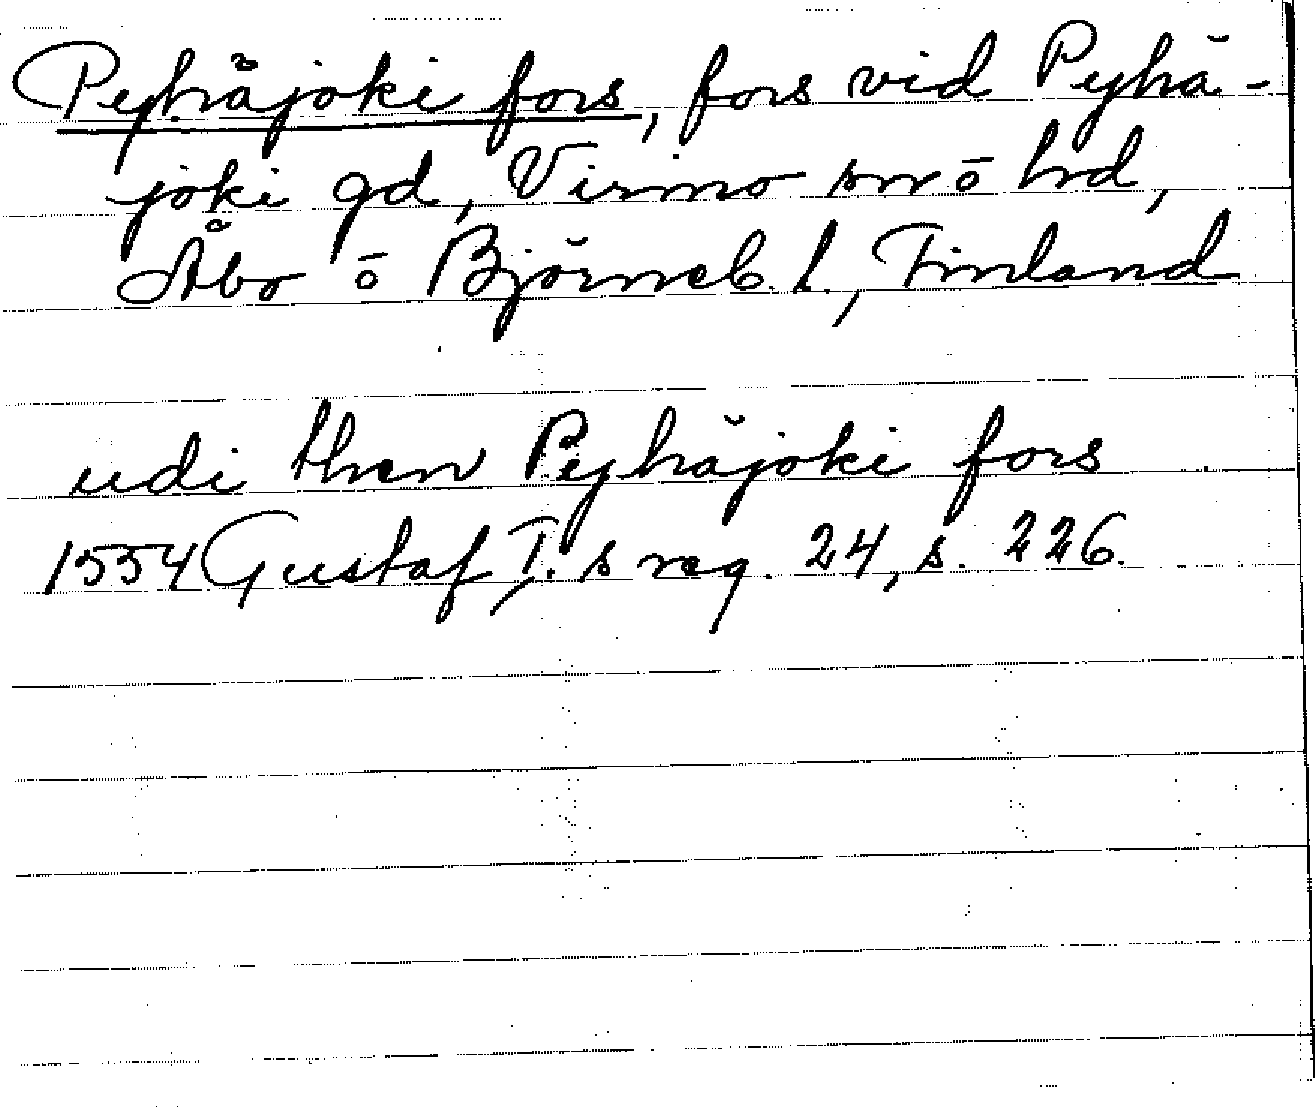 Peyhäjoki fors, fors vid Pyhä-
joki gd, Virmo sn o hd,
Åbo o Björneb. l., Finland
udi then Peyhäjoki fors
1554 Gustaf I:s reg. 24, s. 226.